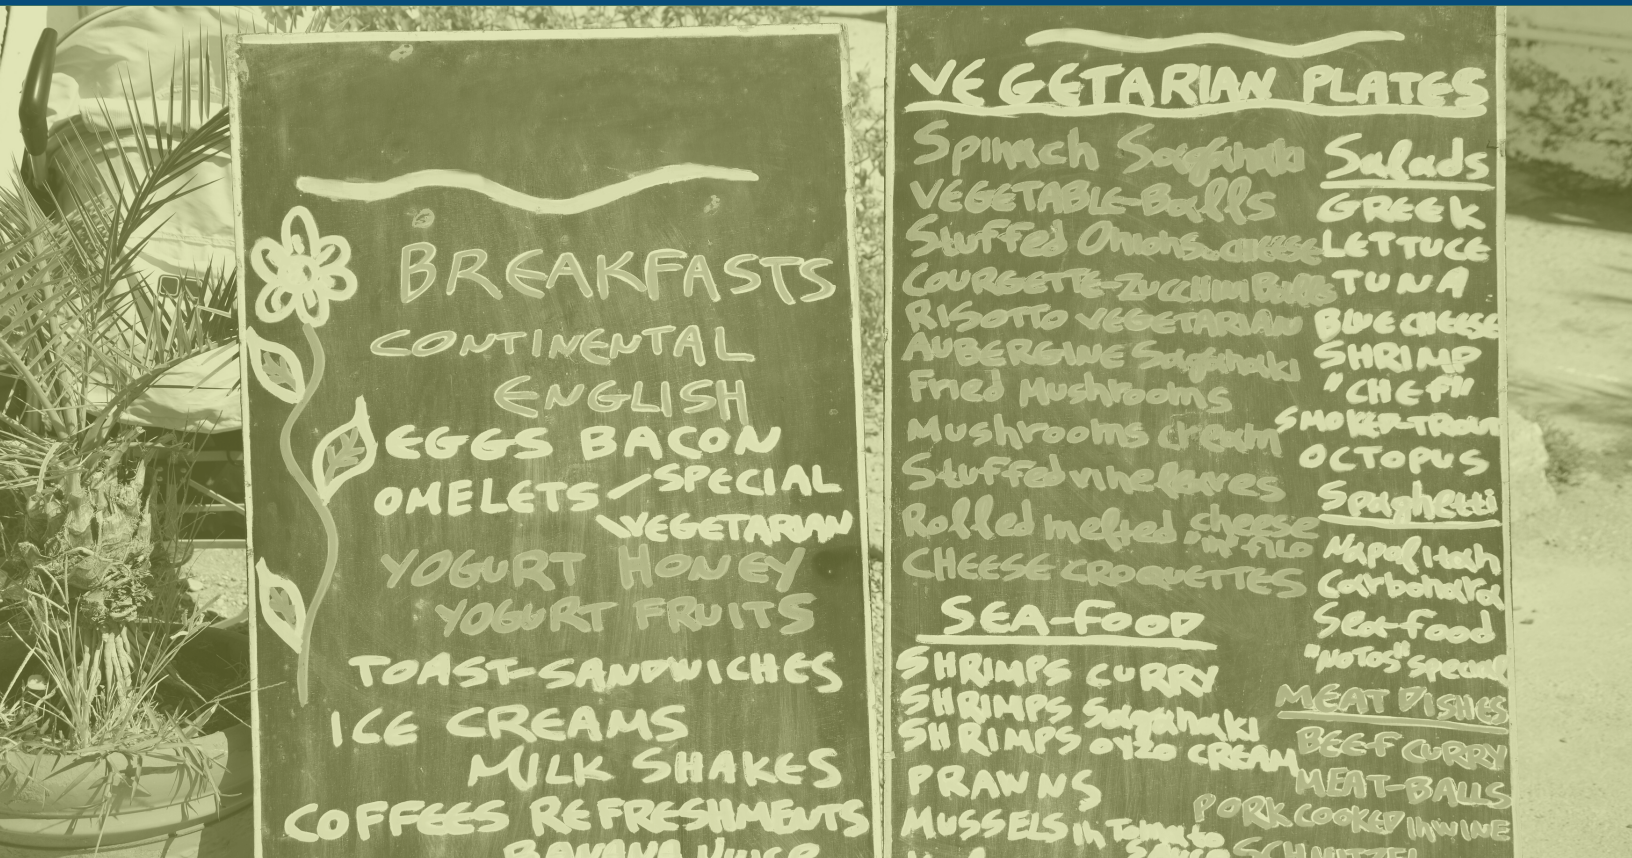 BREAKFASTS
CONTINENTAL
ENGLISH
EGGS BACON
OMELETS / SPECIAL
VEGETARIAN
YOGURT HONEY
YOGURT FRUITS
TOAST-SANDWICHES
ICE CREAMS
MILK SHAKES
COFFEES REFRESHMENTS
BANANA JUICE
VEGETARIAN PLATES
Spinach Saganaki
VEGETABLE-Balls
Stuffed Onions-CHEESE
COURGETTE-ZUCCHINI Balls
RISOTTO VEGETARIAN
AUBERGINE Saganaki
Fried Mushrooms
Mushrooms cream
Stuffed vineleaves
Rolled melted cheese
"in" FILO
CHEESE CROQUETTES
SEA-FOOD
SHRIMPS CURRY
SHRIMPS Saganaki
SHRIMPS OYZO CREAM
PRAWNS
MUSSELS in Tomato
SAUCE
Salads
GREEK
LETTUCE
TUNA
BLUE CHEESE
SHRIMP
"CHEF"
SMOKED-TROUT
OCTOPUS
Spaghetti
Napolitan
Carbonara
Sea-food
"NOTOS" Special
MEAT DISHES
BEEF CURRY
MEAT-BALLS
PORK COOKED IN WINE
SCHNITZEL